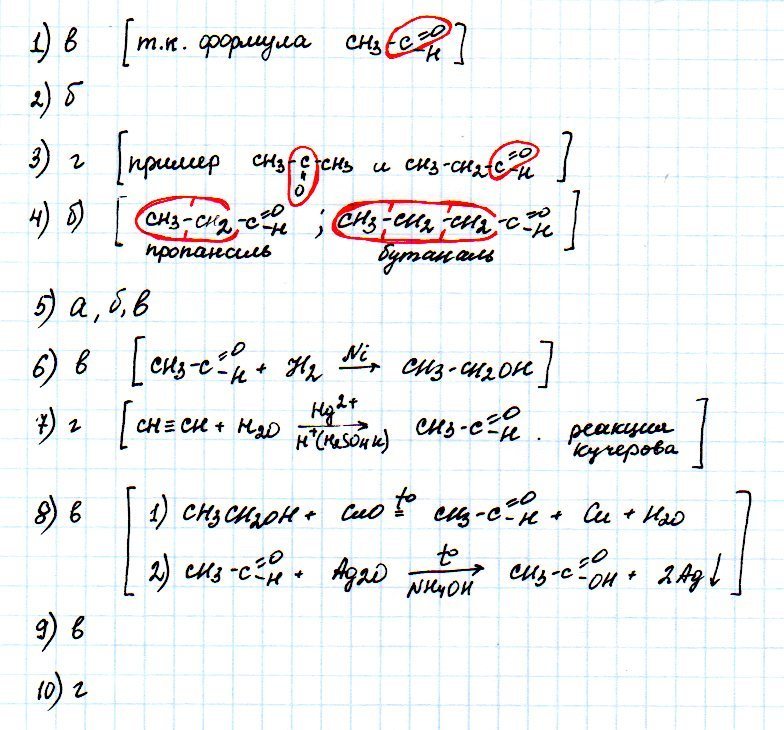 1) в [т.к. формула CH3-C=O-H]
2) б
3) г [пример CH3-C=O-CH3 и CH3-CH2-C=O-H]
4) б) [CH3-CH2-C=O-H ; CH3-CH2-CH2-C=O-H]
пропаналь бутаналь
5) а, б, в
6) в [CH3-C=O-H + H2 Ni→ CH3-CH2OH]
7) г [CH≡CH + H2O Hg2+ H+(H2SO4 к)→ CH3-C=O-H. реакция кучерова]
8) в [1) CH3CH2OH + CuO t°= CH3-C=O-H + Cu + H2O
2) CH3-C=O-H + Ag2O t° NH4OH→ CH3-C=O-OH + 2Ag↓]
9) в
10) г